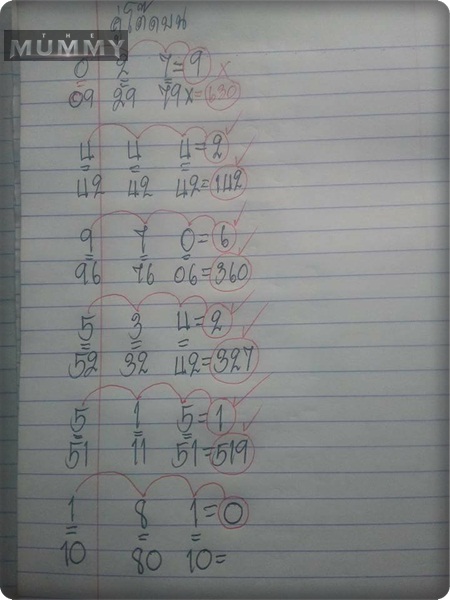 คู่โต๊ดบน
THE
MUMMY
0 2 7 = 9 x
09 29 79 x = 630
4 4 4 = 2
42 42 42 = 142
9 7 0 = 6
96 76 06 = 360
5 3 4 = 2
52 32 42 = 327
5 1 5 = 1
51 11 51 = 519
1 8 1 = 0
10 80 10 =